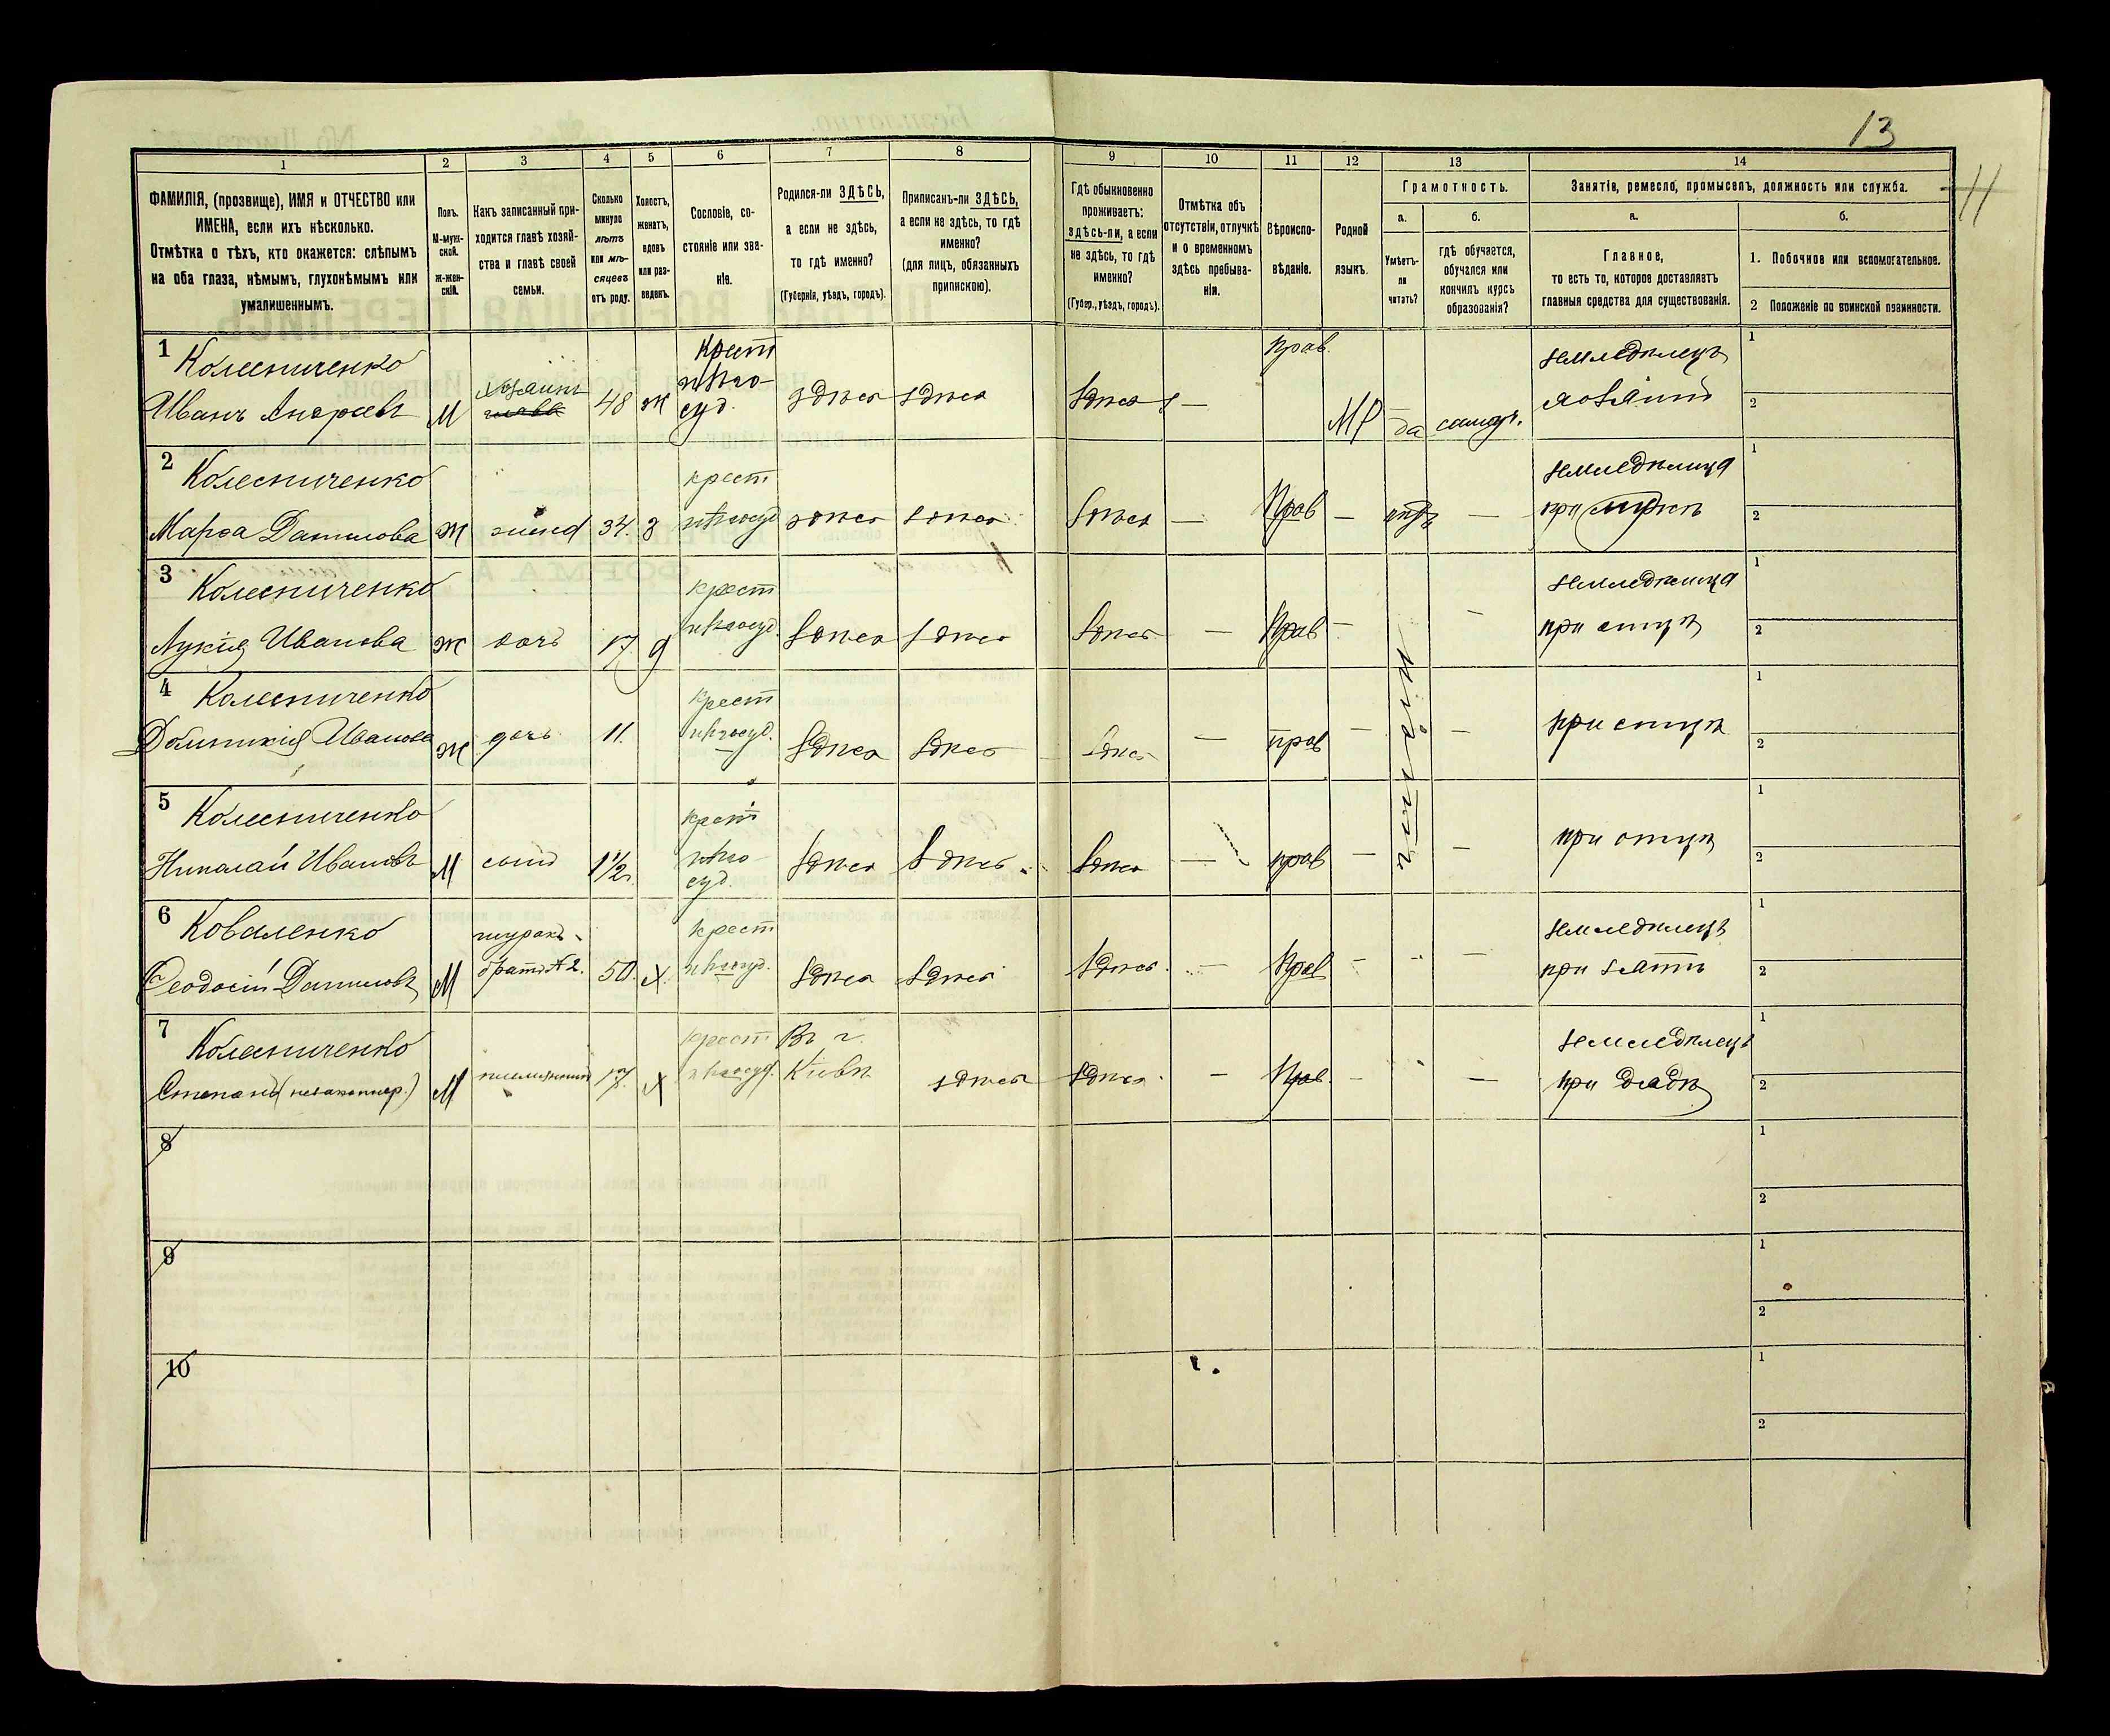 13
11
1 2 3 4 5 6 7 8 9 10 11 12 13 14
ФАМИЛІЯ, (прозвище), ИМЯ и ОТЧЕСТВО или
ИМЕНА, если ихъ нѣсколько.
Отмѣтка о тѣхъ, кто окажется: слѣпымъ
на оба глаза, нѣмымъ, глухонѣмымъ или
умалишеннымъ.
Полъ.
М-муж-
ской.
Ж-жен-
скій.
Какъ записанный при-
ходится главѣ хозяй-
ства и главѣ своей
семьи.
Сколько
минуло
лѣтъ
или мѣ-
сяцевъ
отъ роду.
Холостъ,
женатъ,
вдовъ
или раз-
веденъ.
Сословіе, со-
стояніе или зва-
ніе.
Родился-ли ЗДѢСЬ,
а если не здѣсь,
то гдѣ именно?
(Губернія, уѣздъ, городъ).
Приписанъ-ли ЗДѢСЬ,
а если не здѣсь, то гдѣ
именно?
(для лицъ, обязанныхъ
припискою).
Гдѣ обыкновенно
проживаетъ:
здѣсь-ли, а если
не здѣсь, то гдѣ
именно?
(Губер., уѣздъ, городъ).
Отмѣтка объ
отсутствіи, отлучкѣ
и о временномъ
здѣсь пребыва-
ніи.
Вѣроиспо-
вѣданіе.
Родной
языкъ.
Грамотность.
а.
Умѣетъ-
ли
читать?
б.
гдѣ обучается,
обучался или
кончилъ курсъ
образованія?
Занятіе, ремесло, промыселъ, должность или служба.
а.
Главное,
то есть то, которое доставляетъ
главныя средства для существованія.
б.
1. Побочное или вспомогательное.
2 Положеніе по воинской повинности.
1 Колесниченко Крест Прав. земледѣлецъ 1
Иванъ Андреевъ М хозяинъ 48 ж здѣсь здѣсь здѣсь — МР да самоуч. хозяинъ 2
2 Колесниченко крест земледѣлица 1
Марѳа Данилова Ж жена 34. з здѣсь здѣсь здѣсь — Прав — — при мужѣ 2
3 Колесниченко крест земледѣлица 1
Лукія Иванова Ж дочь 17 д здѣсь здѣсь здѣсь — Прав — — при отцѣ 2
4 Колесниченко крест 1
Домникія Иванова Ж дочь 11. здѣсь здѣсь здѣсь — прав — — при отцѣ 2
5 Колесниченко крест 1
Николай Ивановъ М сынъ 1½ здѣсь здѣсь здѣсь — прав — — при отцѣ 2
6 Коваленко шуринъ крест земледѣлецъ 1
Ѳеодосій Даниловъ М братъ №2. 50. х здѣсь здѣсь здѣсь — Прав — — при зятѣ 2
7 Колесниченко крест Въ г. земледѣлецъ 1
Степанъ (незаконнор.) М племянникъ 17. х Кіевѣ здѣсь здѣсь — Прав. — — при дядѣ 2
8 1
2
9 1
2
10 1
2